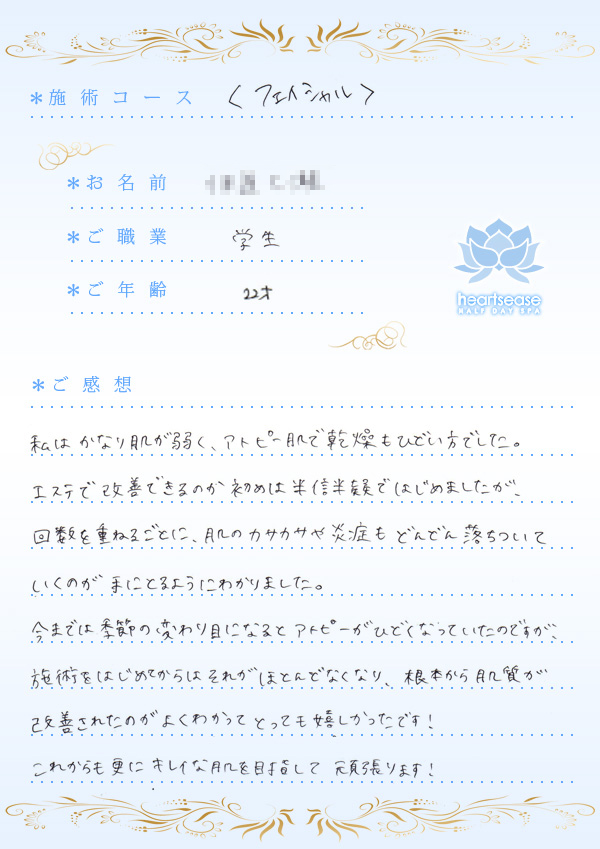 *施術コース 〈フェイシャル〉
*お名前
*ご職業 学生
*ご年齢 22才
heartsease
HALF DAY SPA
*ご感想
私はかなり肌が弱く、アトピー肌で乾燥もひどい方でした。
エステで改善できるのか初めは半信半疑ではじめましたが、
回数を重ねるごとに、肌のカサカサや炎症もどんどん落ちついて
いくのが手にとるようにわかりました。
今までは季節の変わり目になるとアトピーがひどくなっていたのですが、
施術をはじめてからはそれがほとんどなくなり、根本から肌質が
改善されたのがよくわかってとっても嬉しかったです!
これからも更にキレイな肌を目指して頑張ります!